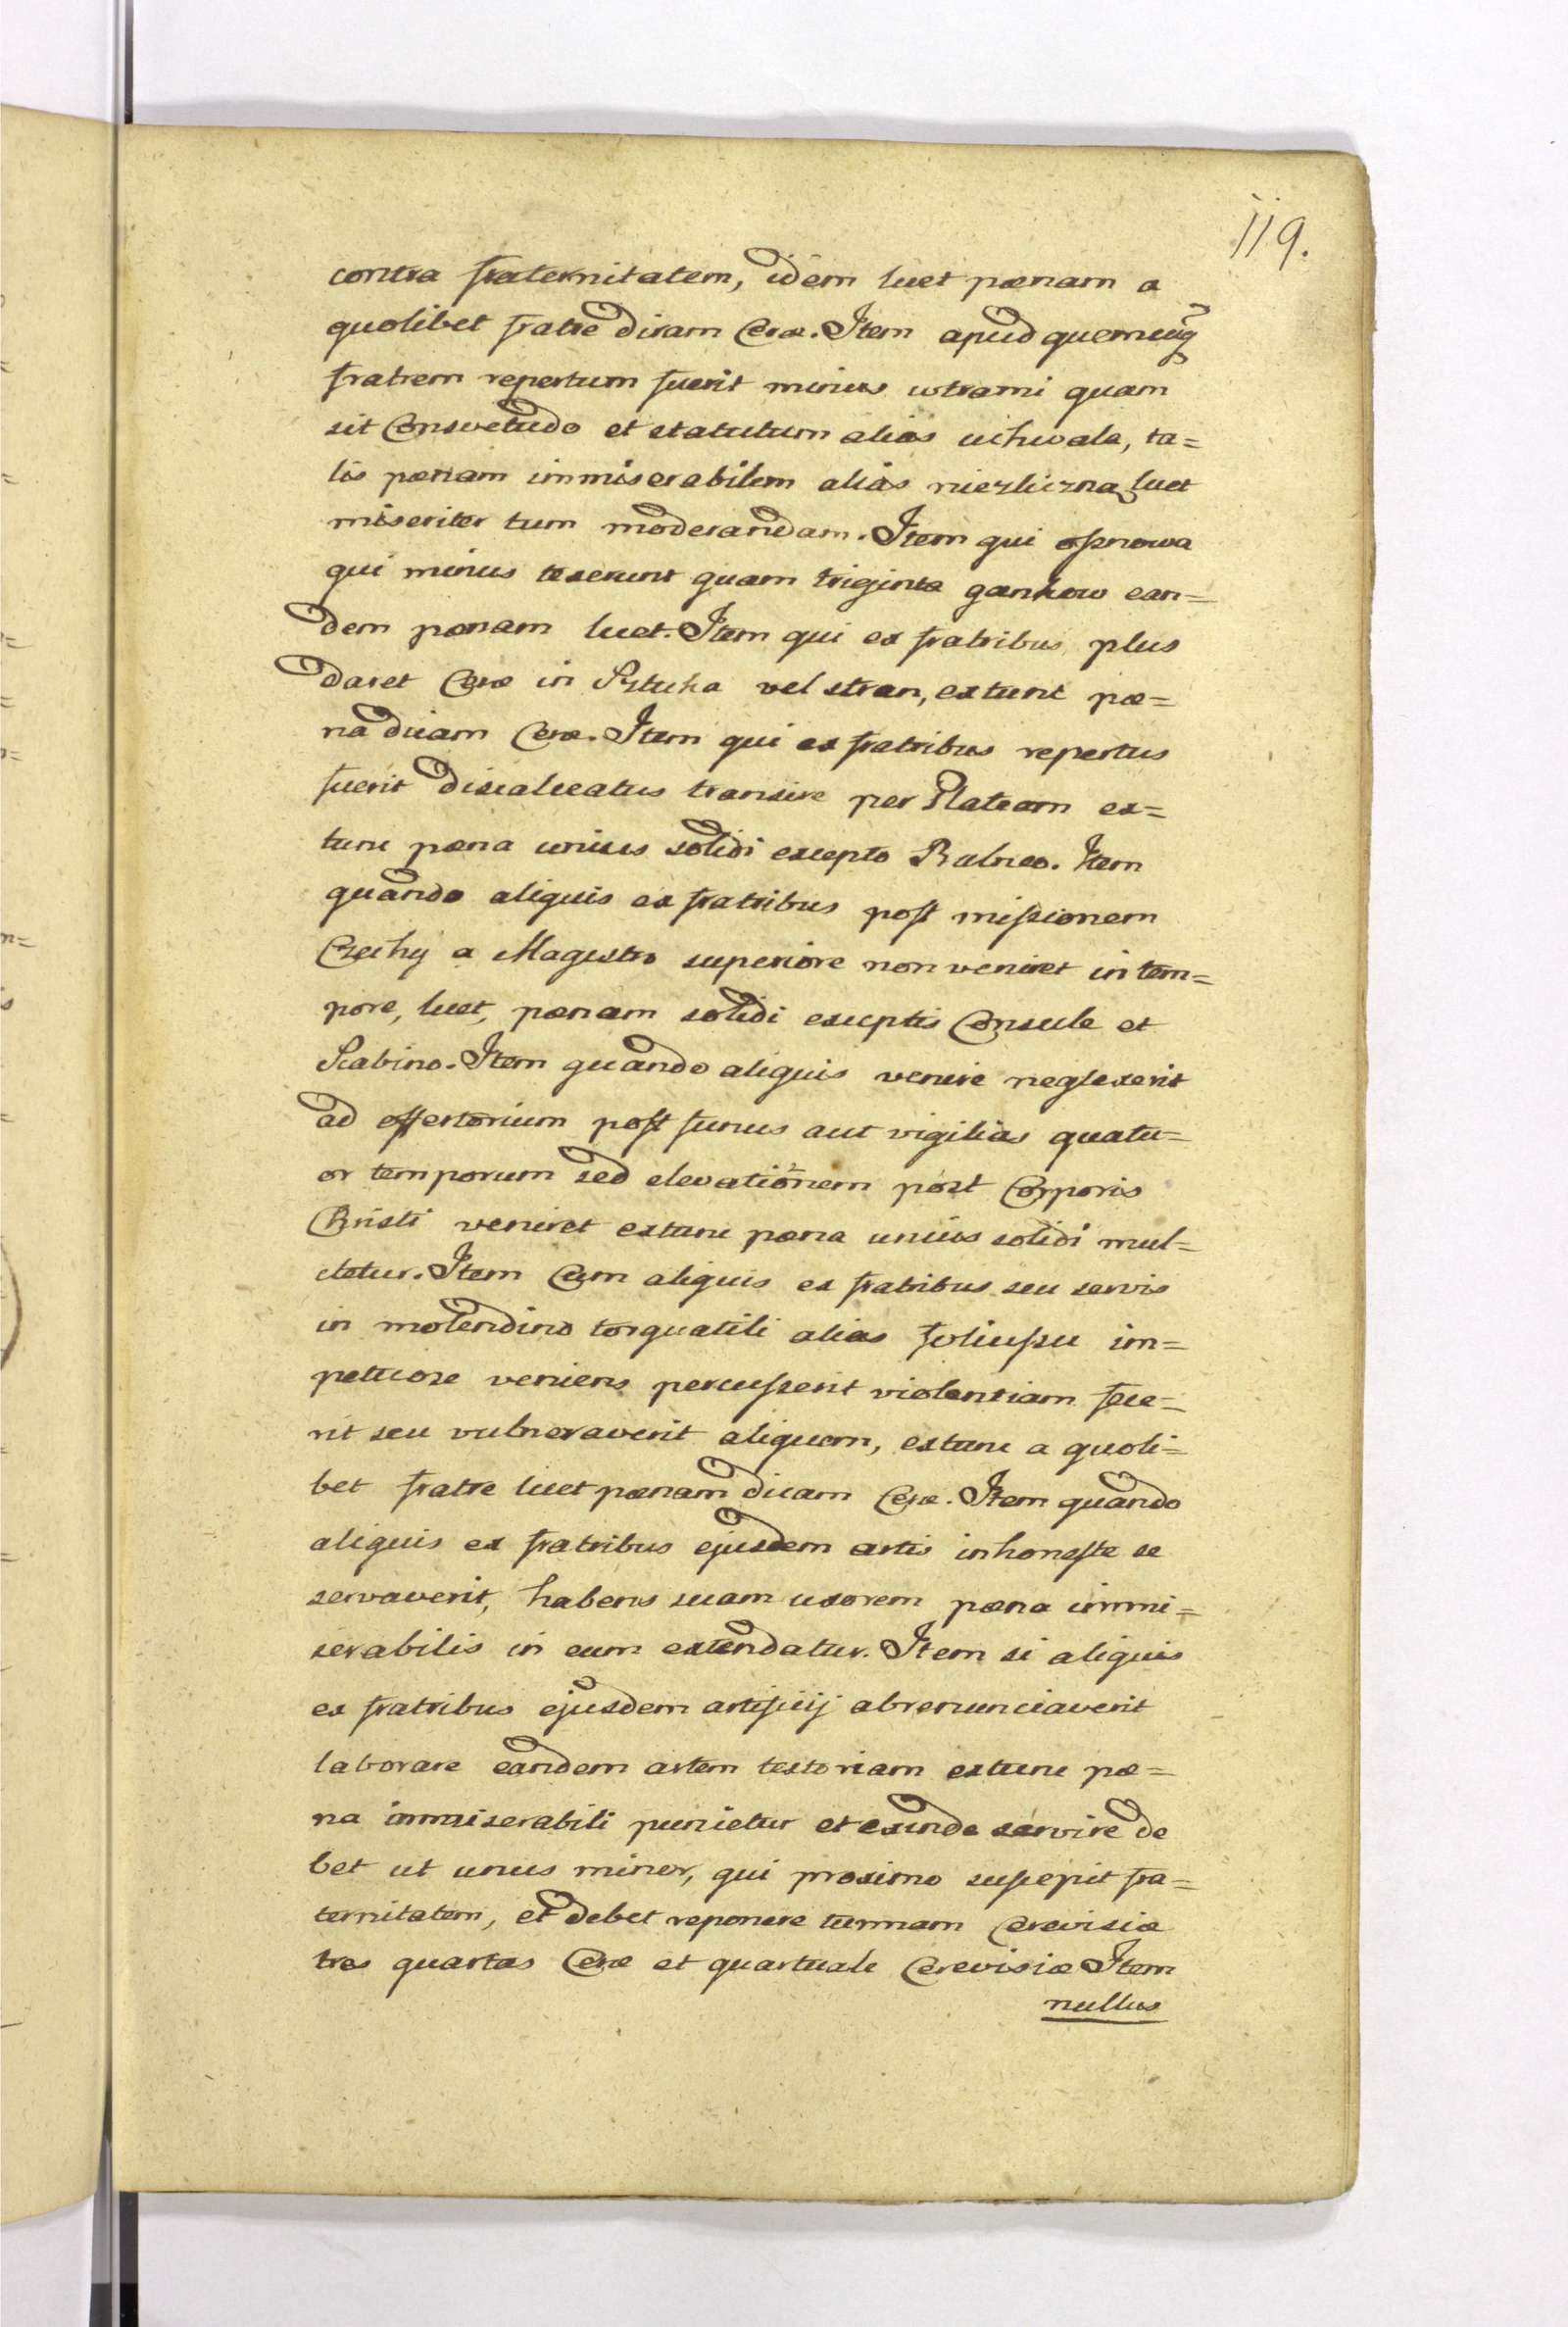 119.
contra fraternitatem, idem luet pœnam a
quolibet fratre divam Ceræ. Item apud quemcuq̃
fratrem repertum fuerit minus wtrami quam
sit Consvetudo et statutum alias uchwala, ta=
lis pœnam immiserabilem alias niezliczną luet
miseriter tum moderandam. Item qui osznowa
qui minus texerunt quam triginta gankow ean=
dem pœnam luet. Item qui ex fratribus plus
daret Ceræ in Sztuka vel stran, extunc pæ=
na ducam Ceræ. Item qui ex fratribus repertus
fuerit discalceatus transire per Plateam ex=
tunc pæna unius solidi excepto Balneo. Item
quando aliquis ex fratribus post missionem
Czechy a Magistro superiore non veniret in tem=
pore, luet, pœnam solidi exceptis Consule et
Scabino. Item quando aliquis venire neglexerit
ad offertorium post funus aut vigilias quatu=
or temporum sed elevationem post Corporis
Christi veniret extunc pæna unius solidi mul=
ctetur. Item Cum aliquis ex fratribus seu servis
in molendino torquatili alias foliuszu im=
petuose veniens percusserit violentiam fece=
rit seu vulneraverit aliquem, extunc a quoli=
bet fratre luet pœnam ducam Ceræ. Item quando
aliquis ex fratribus ejusdem artis inhoneste se
servaverit, habens suam uxorem pæna immi=
serabilis in eum extendatur. Item si aliquis
ex fratribus ejusdem artificij abrenunciaverit
laborare eandem artem textoriam extunc pæ=
na immiserabili punietur et exinde servire de
bet ut unus minor, qui proximo suscepit fra=
ternitatem, et debet reponere tunnam Cerevisiæ
tres quartas Ceræ et quartuale Cerevisiæ Item
nullus